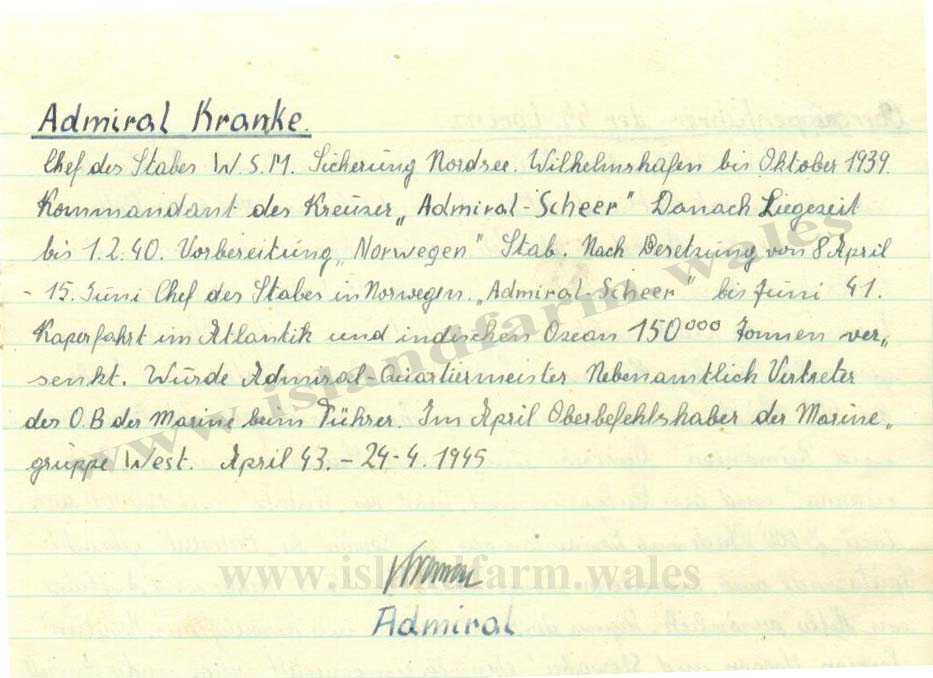 Admiral Kranke.
Chef des Stabes W.S.M. Sicherung Nordsee. Wilhelmshafen bis Oktober 1939.
Kommandant des Kreuzer „Admiral-Scheer" Danach Liegezeit
bis 1.2.40. Vorbereitung „Norwegen" Stab. Nach Besetzung von 8 April
- 15. Juni Chef des Stabes in Norwegen. „Admiral Scheer" bis Juni 41.
Kaperfahrt im Atlantik und indischen Ozean 150000 Tonnen ver„
senkt. Wurde Admiral-Quartiermeister Nebenamtlich Vertreter
des O.B der Marine beim Führer. Im April Oberbefehlshaber der Marine„
gruppe West. April 43. - 24-4. 1945
Admiral
www.islandfarm.wales
www.islandfarm.wales